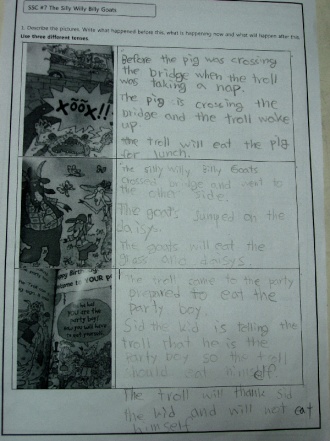 SSC #7 The Silly Willy Billy Goats
1. Describe the pictures. Write what happened before this, what is happening now and what will happen after this.
Use three different tenses.
XÕÕX!!
Before the pig was crossing
the bridge when the troll
was taking a nap.
The pig is crossing the
bridge and the troll woke
up
the troll will eat the pig
for lunch.
The silly willy Billy Goats
crossed bridge and went to
the other side.
The goats jumped on the
daisys.
The goats will eat the
grass and daisys.
The troll came to the party
prepared to eat the
party boy.
Sid the kid is telling the
troll that he is the
party boy so the troll
should eat himself.
The troll will thank Sid
the kid and will not eat
himself